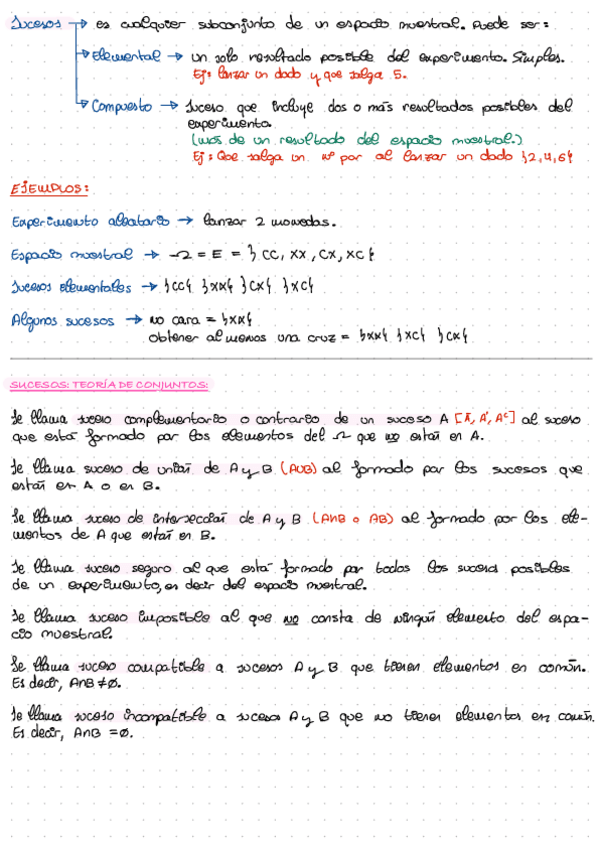 Sucesos → es cualquier subconjunto de un espacio muestral. Puede ser:
→ Elemental → un solo resultado posible del experimento. Simples.
Ej: lanzar un dado y que salga 5.
→ Compuesto → Suceso que incluye dos o más resultados posibles del
experimento.
(más de un resultado del espacio muestral.)
Ej: Que salga un nº par al lanzar un dado {2,4,6}
EJEMPLOS:
Experimento aleatorio → lanzar 2 monedas.
Espacio muestral → Ω = E = {CC, XX, CX, XC}
Sucesos elementales → {CC} {XX} {CX} {XC}
Algunos sucesos → no cara = {XX}
obtener al menos una cruz = {XX} {XC} {CX}
SUCESOS: TEORÍA DE CONJUNTOS:
Se llama suceso complementario o contrario de un suceso A [Ā, A', Aᶜ] al suceso
que está formado por los elementos del Ω que no están en A.
Se llama suceso de unión de A y B (A∪B) al formado por los sucesos que
están en A o en B.
Se llama suceso de intersección de A y B (A∩B o AB) al formado por los ele-
mentos de A que están en B.
Se llama suceso seguro al que está formado por todos los sucesos posibles
de un experimento, es decir del espacio muestral.
Se llama suceso imposible al que no consta de ningún elemento del espa-
cio muestral.
Se llama suceso compatible a sucesos A y B que tienen elementos en común.
Es decir, A∩B ≠ ∅.
Se llama suceso incompatible a sucesos A y B que no tienen elementos en común.
Es decir, A∩B = ∅.